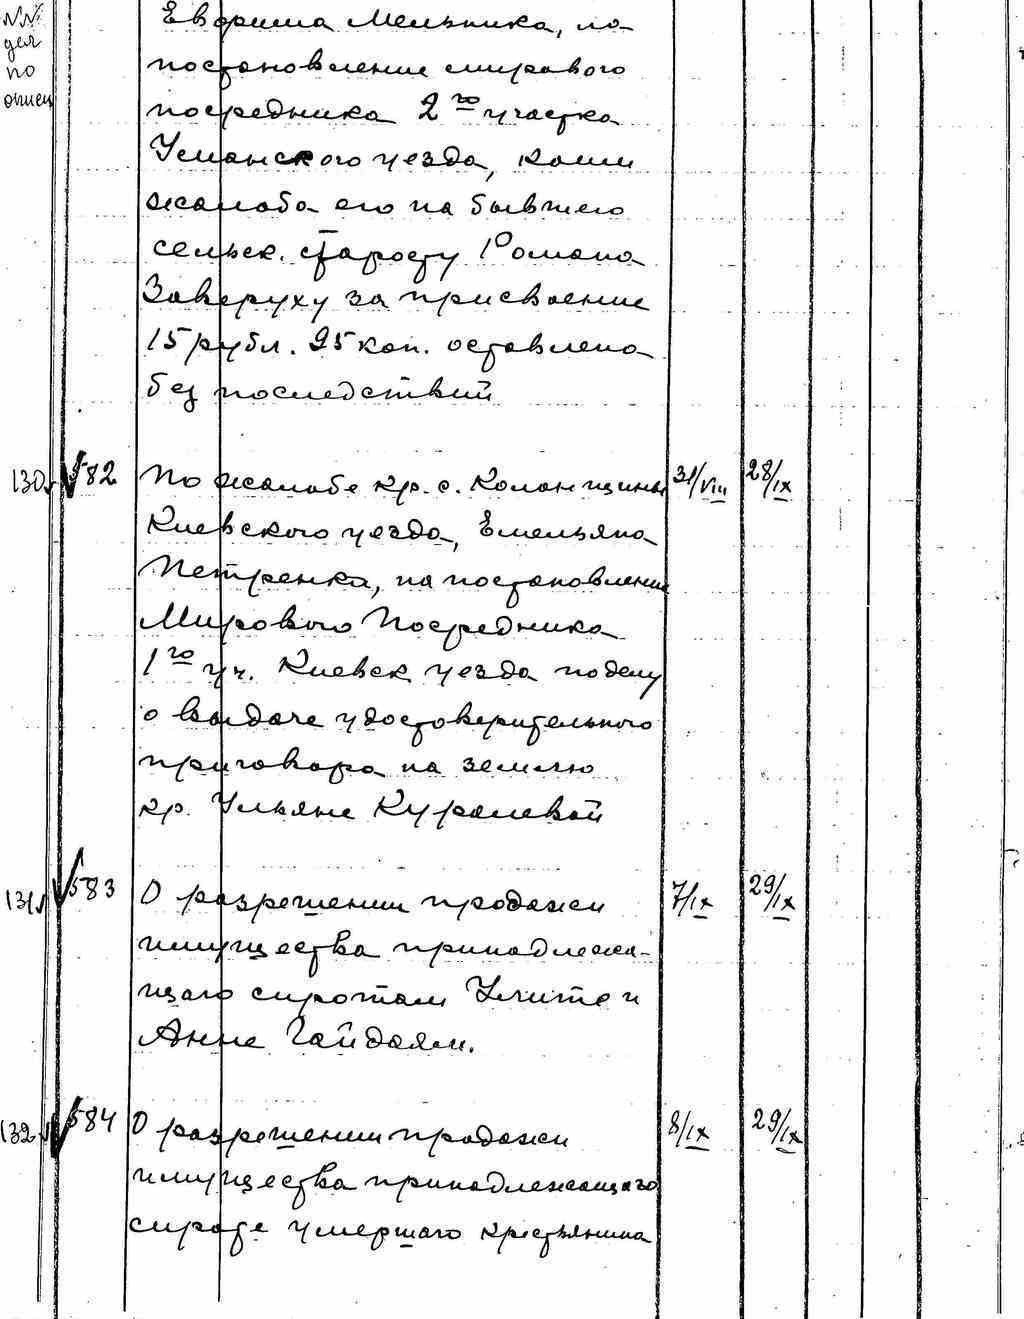 №№
дел
по
описи
Евфима Мельника, на
постановление мирового
посредника 2го участка
Уманского уезда, коим
жалоба его на бывшего
сельск. старосту Романа
Заверуху за присвоение
15 рубл. 95 коп. оставлена
без последствий
130 582 По жалобе кр. с. Колонщины 31/VIII 28/IX
Киевского уезда, Емельяна
Петренка, на постановление
Мирового Посредника
1го уч. Киевск уезда по делу
о выдаче удостоверительного
приговора на землю
кр. Ульяне Куралевой
131 583 О разрешении продажи 7/IX 29/IX
имущества принадлежа-
щаго сиротам Улите и
Анне Гайдаям.
132 584 О разрешении продажи 8/IX 29/IX
имущества принадлежащаго
сироте умершаго крестьянина